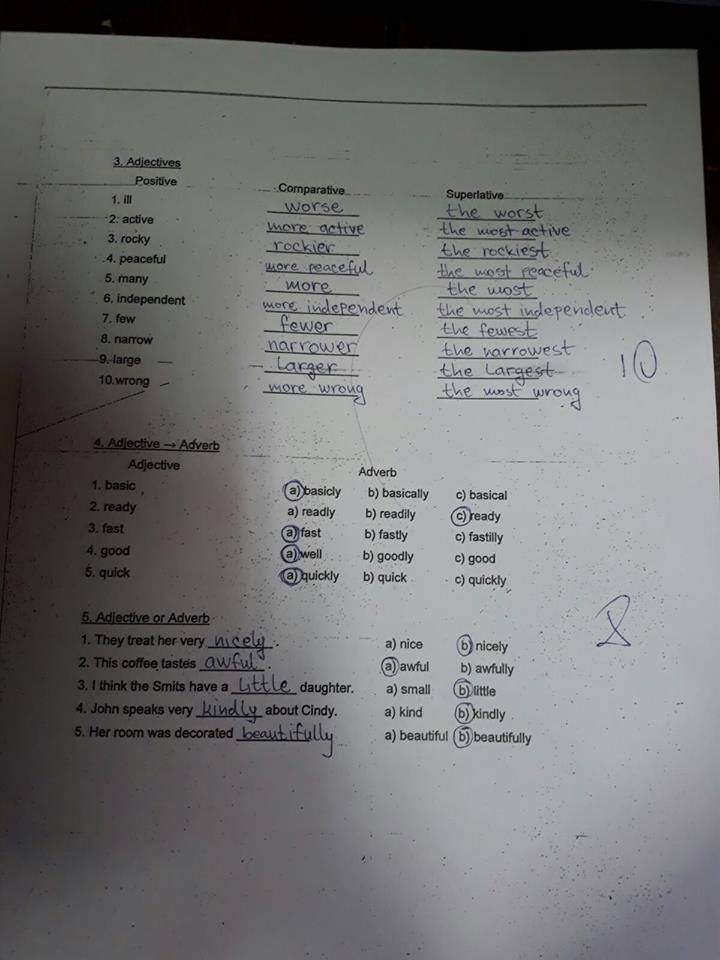 3. Adjectives
Positive Comparative Superlative
1. ill worse the worst
2. active more active the most active
3. rocky rockier the rockiest
4. peaceful more peaceful the most peaceful
5. many more the most
6. independent more independent the most independent
7. few fewer the fewest
8. narrow narrower the narrowest
9. large Larger the Largest
10. wrong more wrong the most wrong
10
4. Adjective → Adverb
Adjective Adverb
1. basic a) basicly b) basically c) basical
2. ready a) readly b) readily c) ready
3. fast a) fast b) fastly c) fastilly
4. good a) well b) goodly c) good
5. quick a) quickly b) quick c) quickly
5. Adjective or Adverb
1. They treat her very nicely. a) nice b) nicely
2. This coffee tastes awful. a) awful b) awfully
3. I think the Smits have a Little daughter. a) small b) little
4. John speaks very kindly about Cindy. a) kind b) kindly
5. Her room was decorated beautifully a) beautiful b) beautifully
8